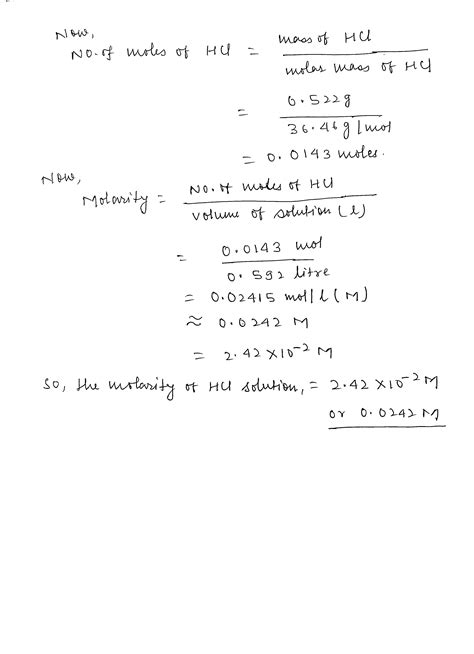 Now,
No. of moles of HCl = mass of HCl / molar mass of HCl
= 0.522g / 36.46 g/mol
= 0.0143 moles.
Now,
Molarity = No. of moles of HCl / volume of solution (l)
= 0.0143 mol / 0.592 litre
= 0.02415 mol/l (M)
≈ 0.0242 M
= 2.42 × 10⁻² M
So, the molarity of HCl solution, = 2.42 × 10⁻² M
or 0.0242 M